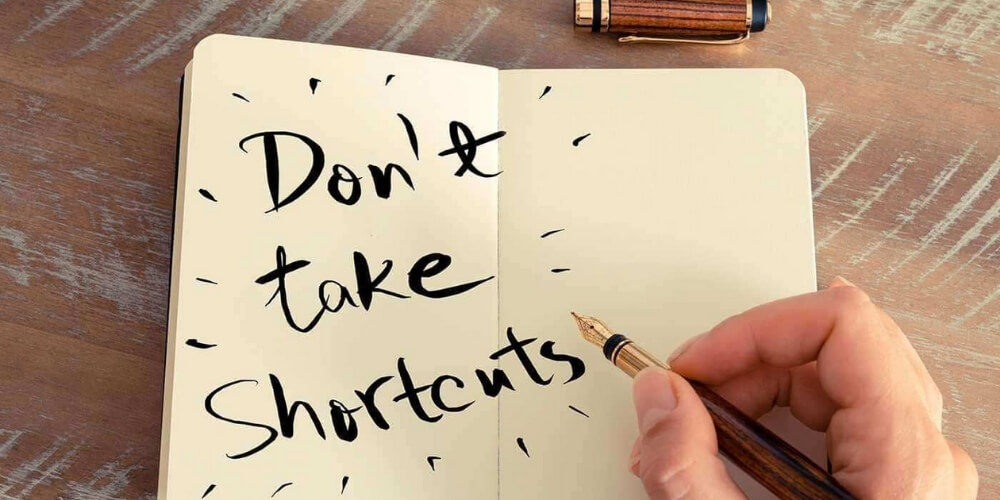 Don't
take
Shortcuts